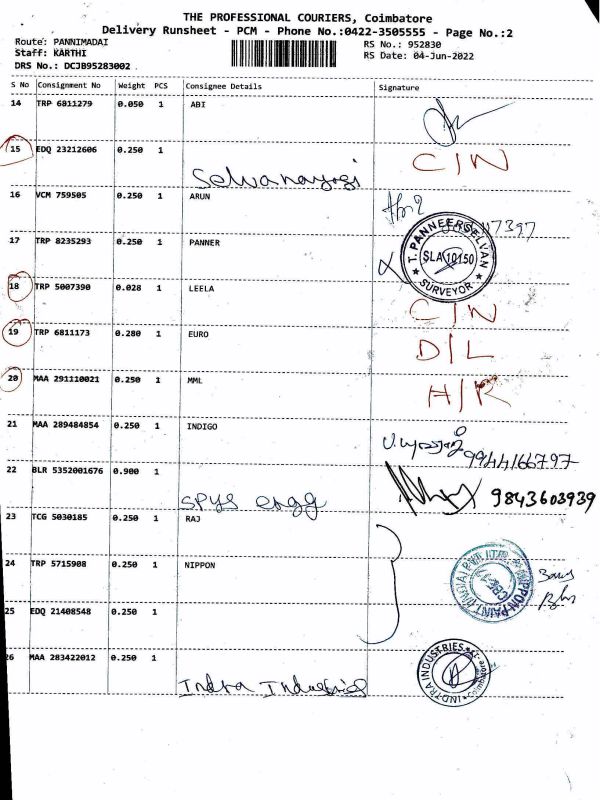 THE PROFESSIONAL COURIERS, Coimbatore
Delivery Runsheet - PCM - Phone No.:0422-3505555 - Page No.:2
Route: PANNIMADAI
RS No.: 952830
Staff: KARTHI
RS Date: 04-Jun-2022
DRS No.: DCJB95283002
S No Consignment No Weight PCS Consignee Details Signature
14 TRP 6811279 0.050 1 ABI
15 EDQ 23212606 0.250 1 Selvanayagi C/N
16 VCM 759505 0.250 1 ARUN
17 TRP 8235293 0.250 1 PANNER
T. PANNEERSELVAN SLA 10150 SURVEYOR
18 TRP 5007390 0.028 1 LEELA C/N
19 TRP 6811173 0.280 1 EURO D/L
20 MAA 291110021 0.250 1 MML H/R
21 MAA 289484854 0.250 1 INDIGO 9944166797
22 BLR 5352001676 0.900 1 SPYS engg 9843603939
23 TCG 5030185 0.250 1 RAJ
24 TRP 5715908 0.250 1 NIPPON
NIPPON PAINT (INDIA) PVT. LTD.
25 EDQ 21408548 0.250 1
26 MAA 283422012 0.250 1 Indra Industries
INDTRA INDUSTRIES